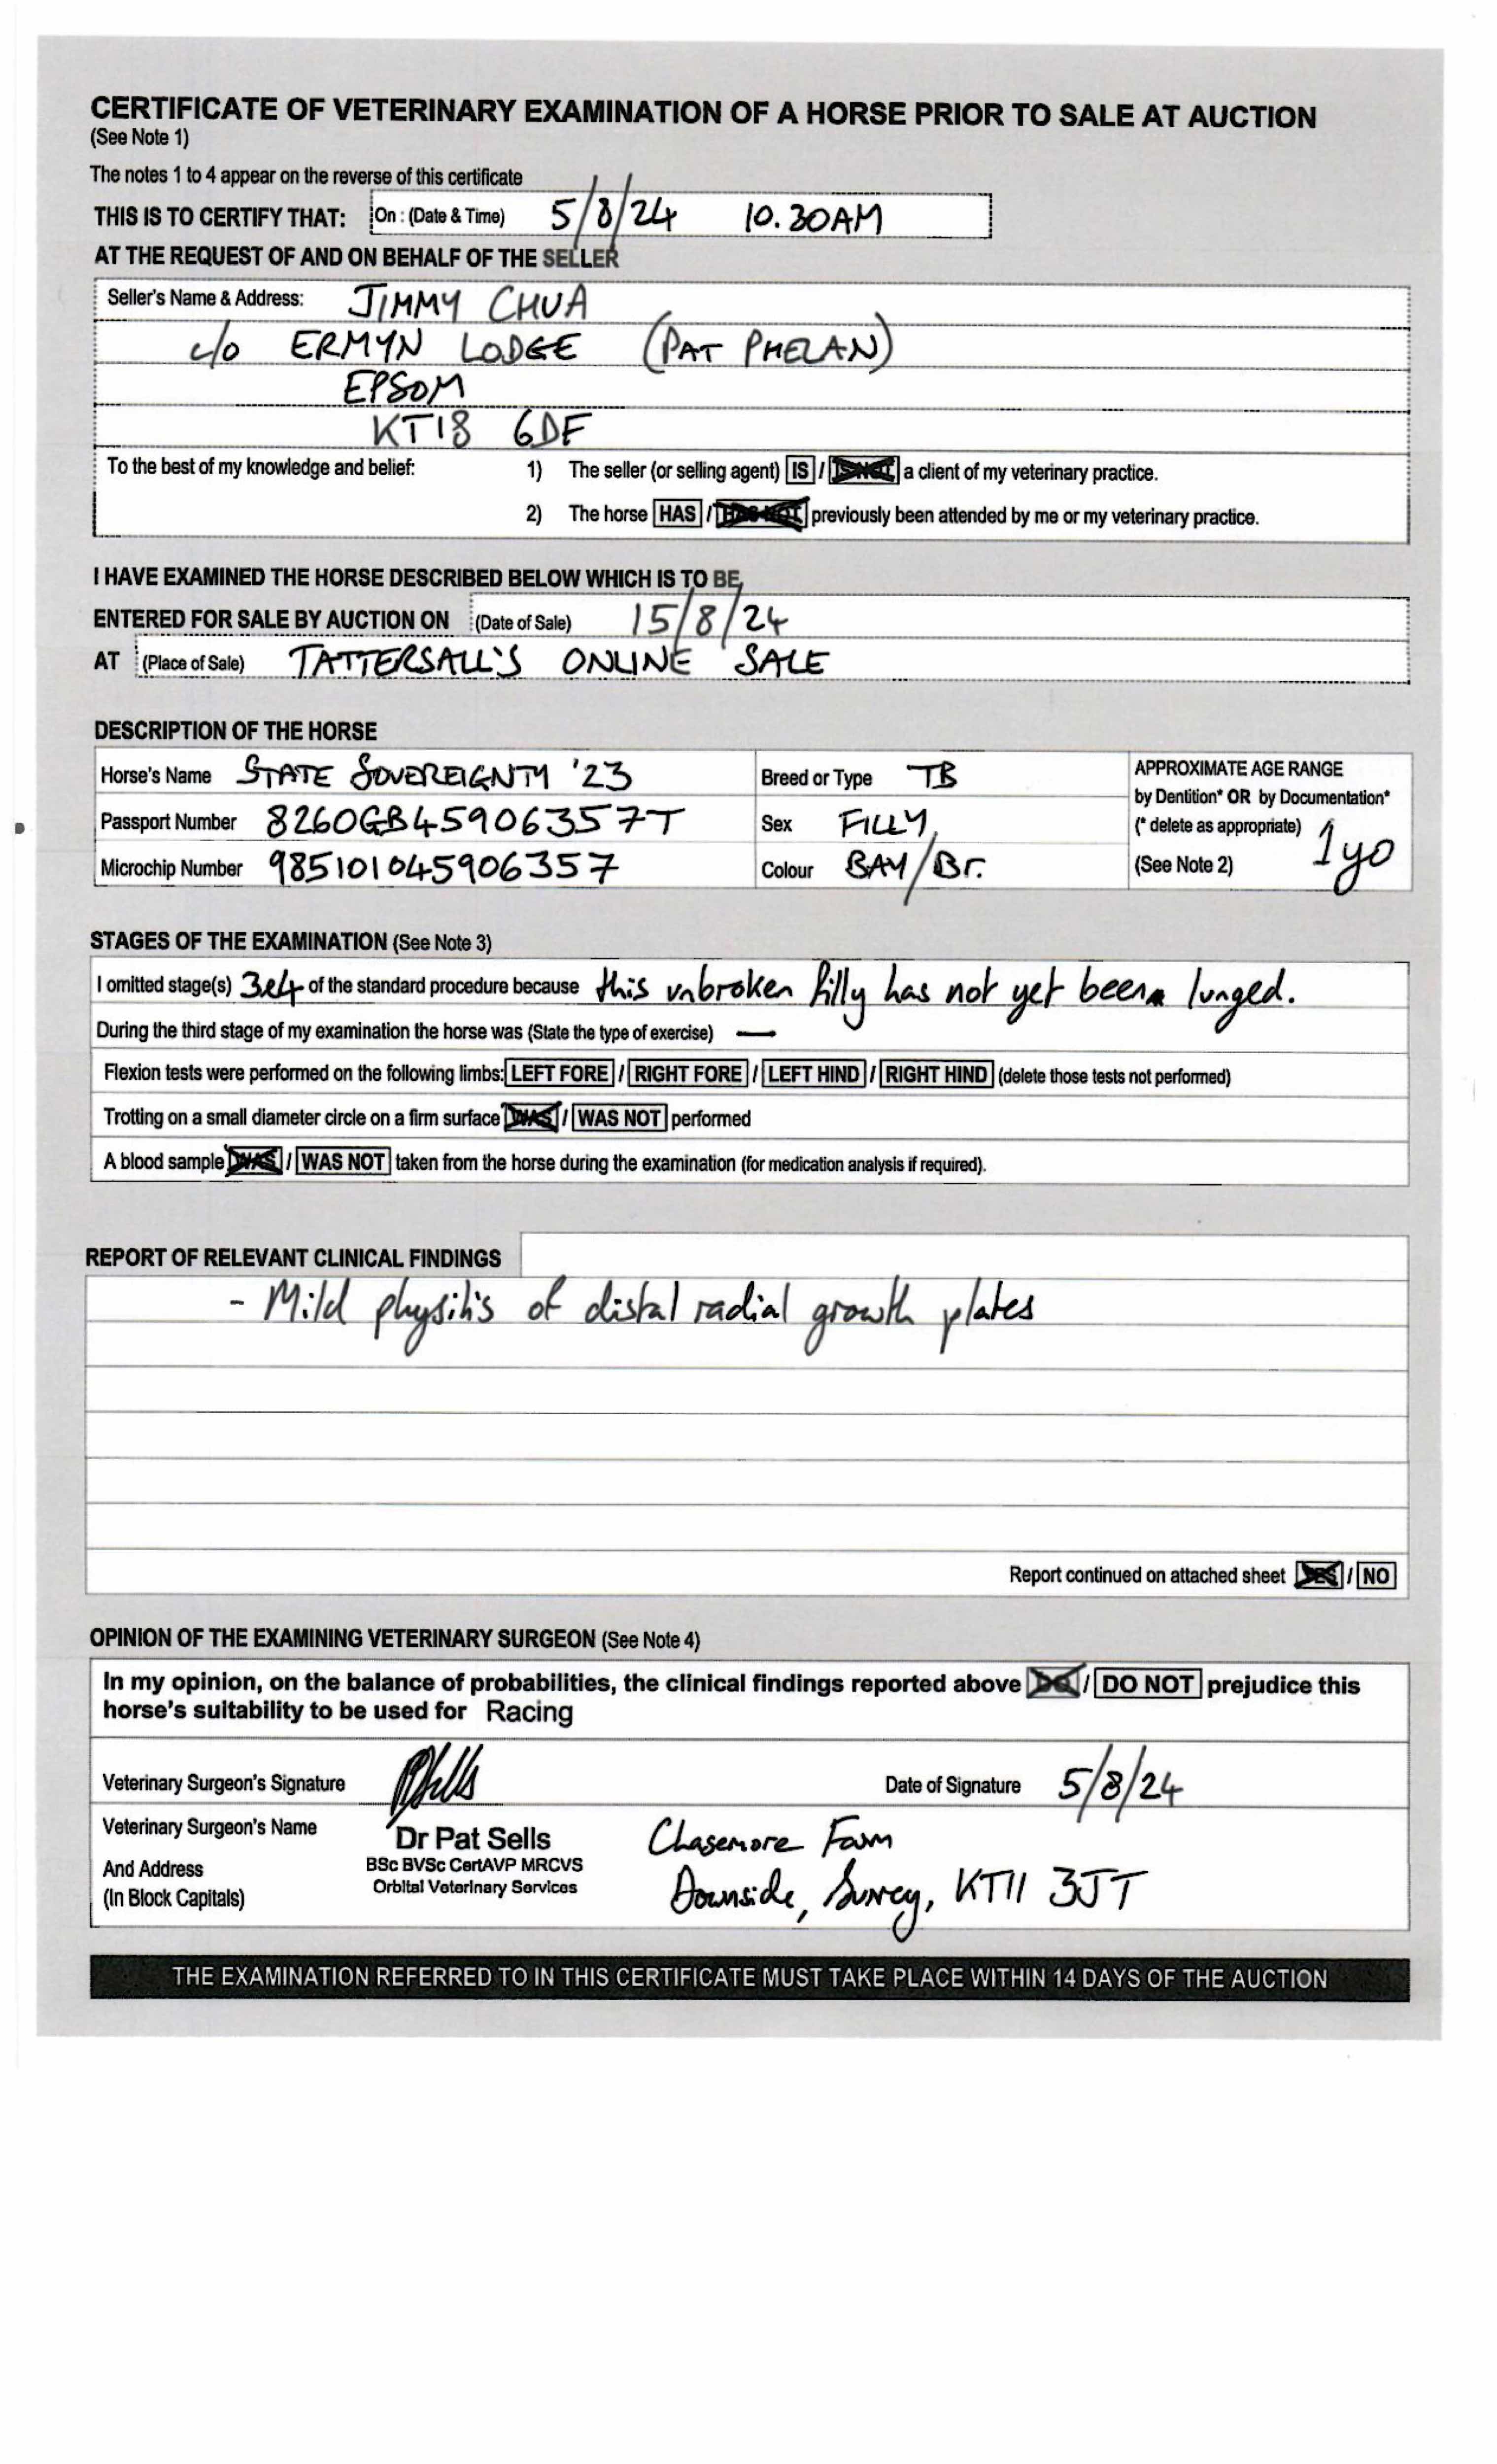 CERTIFICATE OF VETERINARY EXAMINATION OF A HORSE PRIOR TO SALE AT AUCTION
(See Note 1)
The notes 1 to 4 appear on the reverse of this certificate
THIS IS TO CERTIFY THAT: On : (Date & Time) 5/8/24 10.30AM
AT THE REQUEST OF AND ON BEHALF OF THE SELLER
Seller's Name & Address: JIMMY CHUA
c/o ERMYN LODGE (PAT PHELAN)
EPSOM
KT18 6DF
To the best of my knowledge and belief: 1) The seller (or selling agent) IS / IS NOT a client of my veterinary practice.
2) The horse HAS / HAS NOT previously been attended by me or my veterinary practice.
I HAVE EXAMINED THE HORSE DESCRIBED BELOW WHICH IS TO BE
ENTERED FOR SALE BY AUCTION ON (Date of Sale) 15/8/24
AT (Place of Sale) TATTERSALL'S ONLINE SALE
DESCRIPTION OF THE HORSE
Horse's Name STATE SOVEREIGNTY '23 Breed or Type TB
Passport Number 8260GB45906357T Sex FILLY
Microchip Number 985101045906357 Colour BAY/Br.
APPROXIMATE AGE RANGE
by Dentition* OR by Documentation*
(* delete as appropriate) 1yo
(See Note 2)
STAGES OF THE EXAMINATION (See Note 3)
I omitted stage(s) 3&4 of the standard procedure because this unbroken filly has not yet been lunged.
During the third stage of my examination the horse was (State the type of exercise) —
Flexion tests were performed on the following limbs: LEFT FORE / RIGHT FORE / LEFT HIND / RIGHT HIND (delete those tests not performed)
Trotting on a small diameter circle on a firm surface WAS / WAS NOT performed
A blood sample WAS / WAS NOT taken from the horse during the examination (for medication analysis if required).
REPORT OF RELEVANT CLINICAL FINDINGS
- Mild physitis of distal radial growth plates
Report continued on attached sheet YES / NO
OPINION OF THE EXAMINING VETERINARY SURGEON (See Note 4)
In my opinion, on the balance of probabilities, the clinical findings reported above DO / DO NOT prejudice this
horse's suitability to be used for Racing
Veterinary Surgeon's Signature Date of Signature 5/8/24
Veterinary Surgeon's Name Dr Pat Sells Chasemore Farm
And Address BSc BVSc CertAVP MRCVS
(In Block Capitals) Orbital Veterinary Services Downside, Surrey, KT11 3JT
THE EXAMINATION REFERRED TO IN THIS CERTIFICATE MUST TAKE PLACE WITHIN 14 DAYS OF THE AUCTION